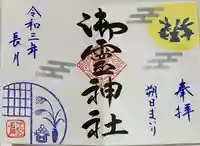 奉拝
朔日まいり
御霊神社
令和三年
長月